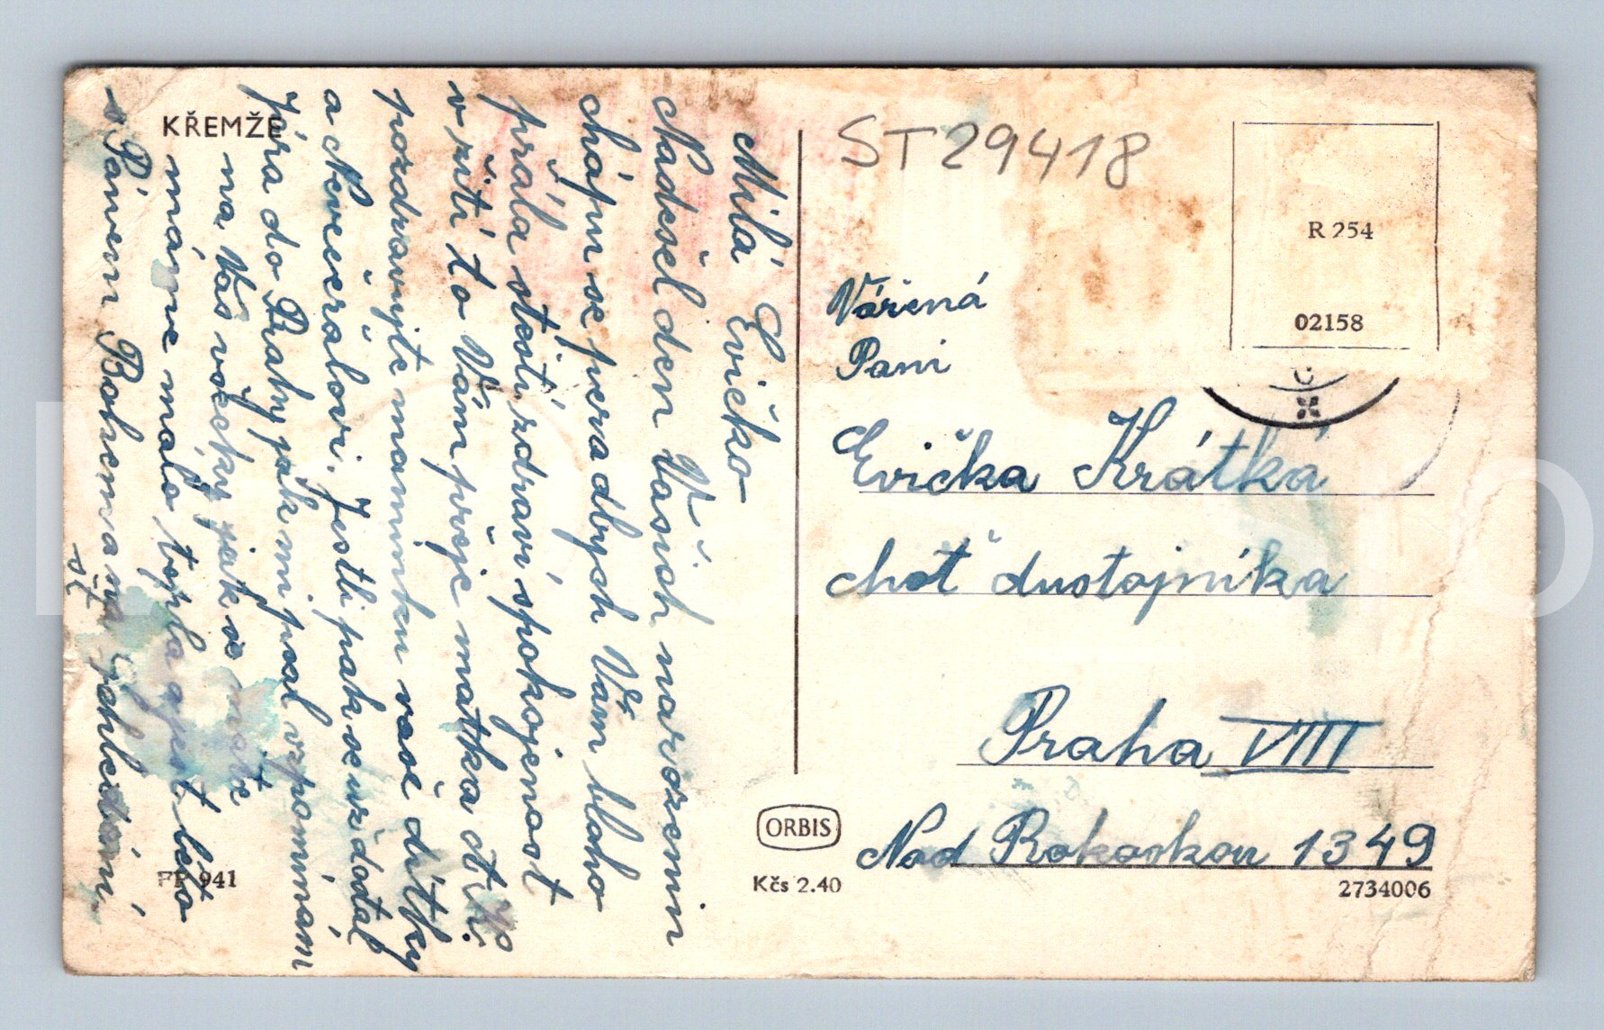 KŘEMŽE
Milá Evičko
Nadešel den Vašich narozenin
chápu se pera abych Vám blaho
přála štěstí zdraví spokojenost
v žití to Vám přeje matka
pozdravujte maminku vaše dítky
a Nevečeřalovi. Jestli pak se už dostal
Jára do Prahy jak mi psal vzpomínám
na Vás vždcky jak
máme málo tepla a jest léto
s Pánem Bohem na shledání
FP 941
ST29418
R 254
02158
Vážená
Pani
Evička Krátká
choť dustojníka
Praha VIII
Nad Rokoskou 1349
ORBIS
Kčs 2.40
2734006